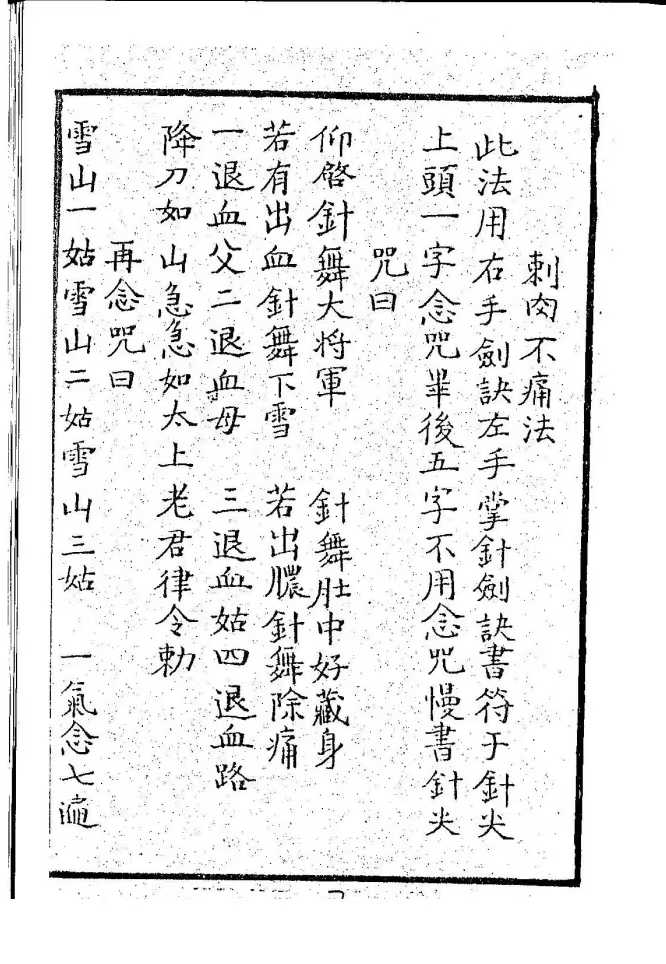 刺肉不痛法
此法用右手劍訣左手掌針劍訣書符于針尖
上頭一字念咒畢後五字不用念咒慢書針尖
咒曰
仰啓針舞大将軍 針舞肚中好藏身
若有出血針舞下雪 若出膿針舞除痛
一退血父二退血母 三退血姑四退血路
降刀如山急急如太上老君律令勅
再念咒曰
雪山一姑雪山二姑雪山三姑 一氣念七遍